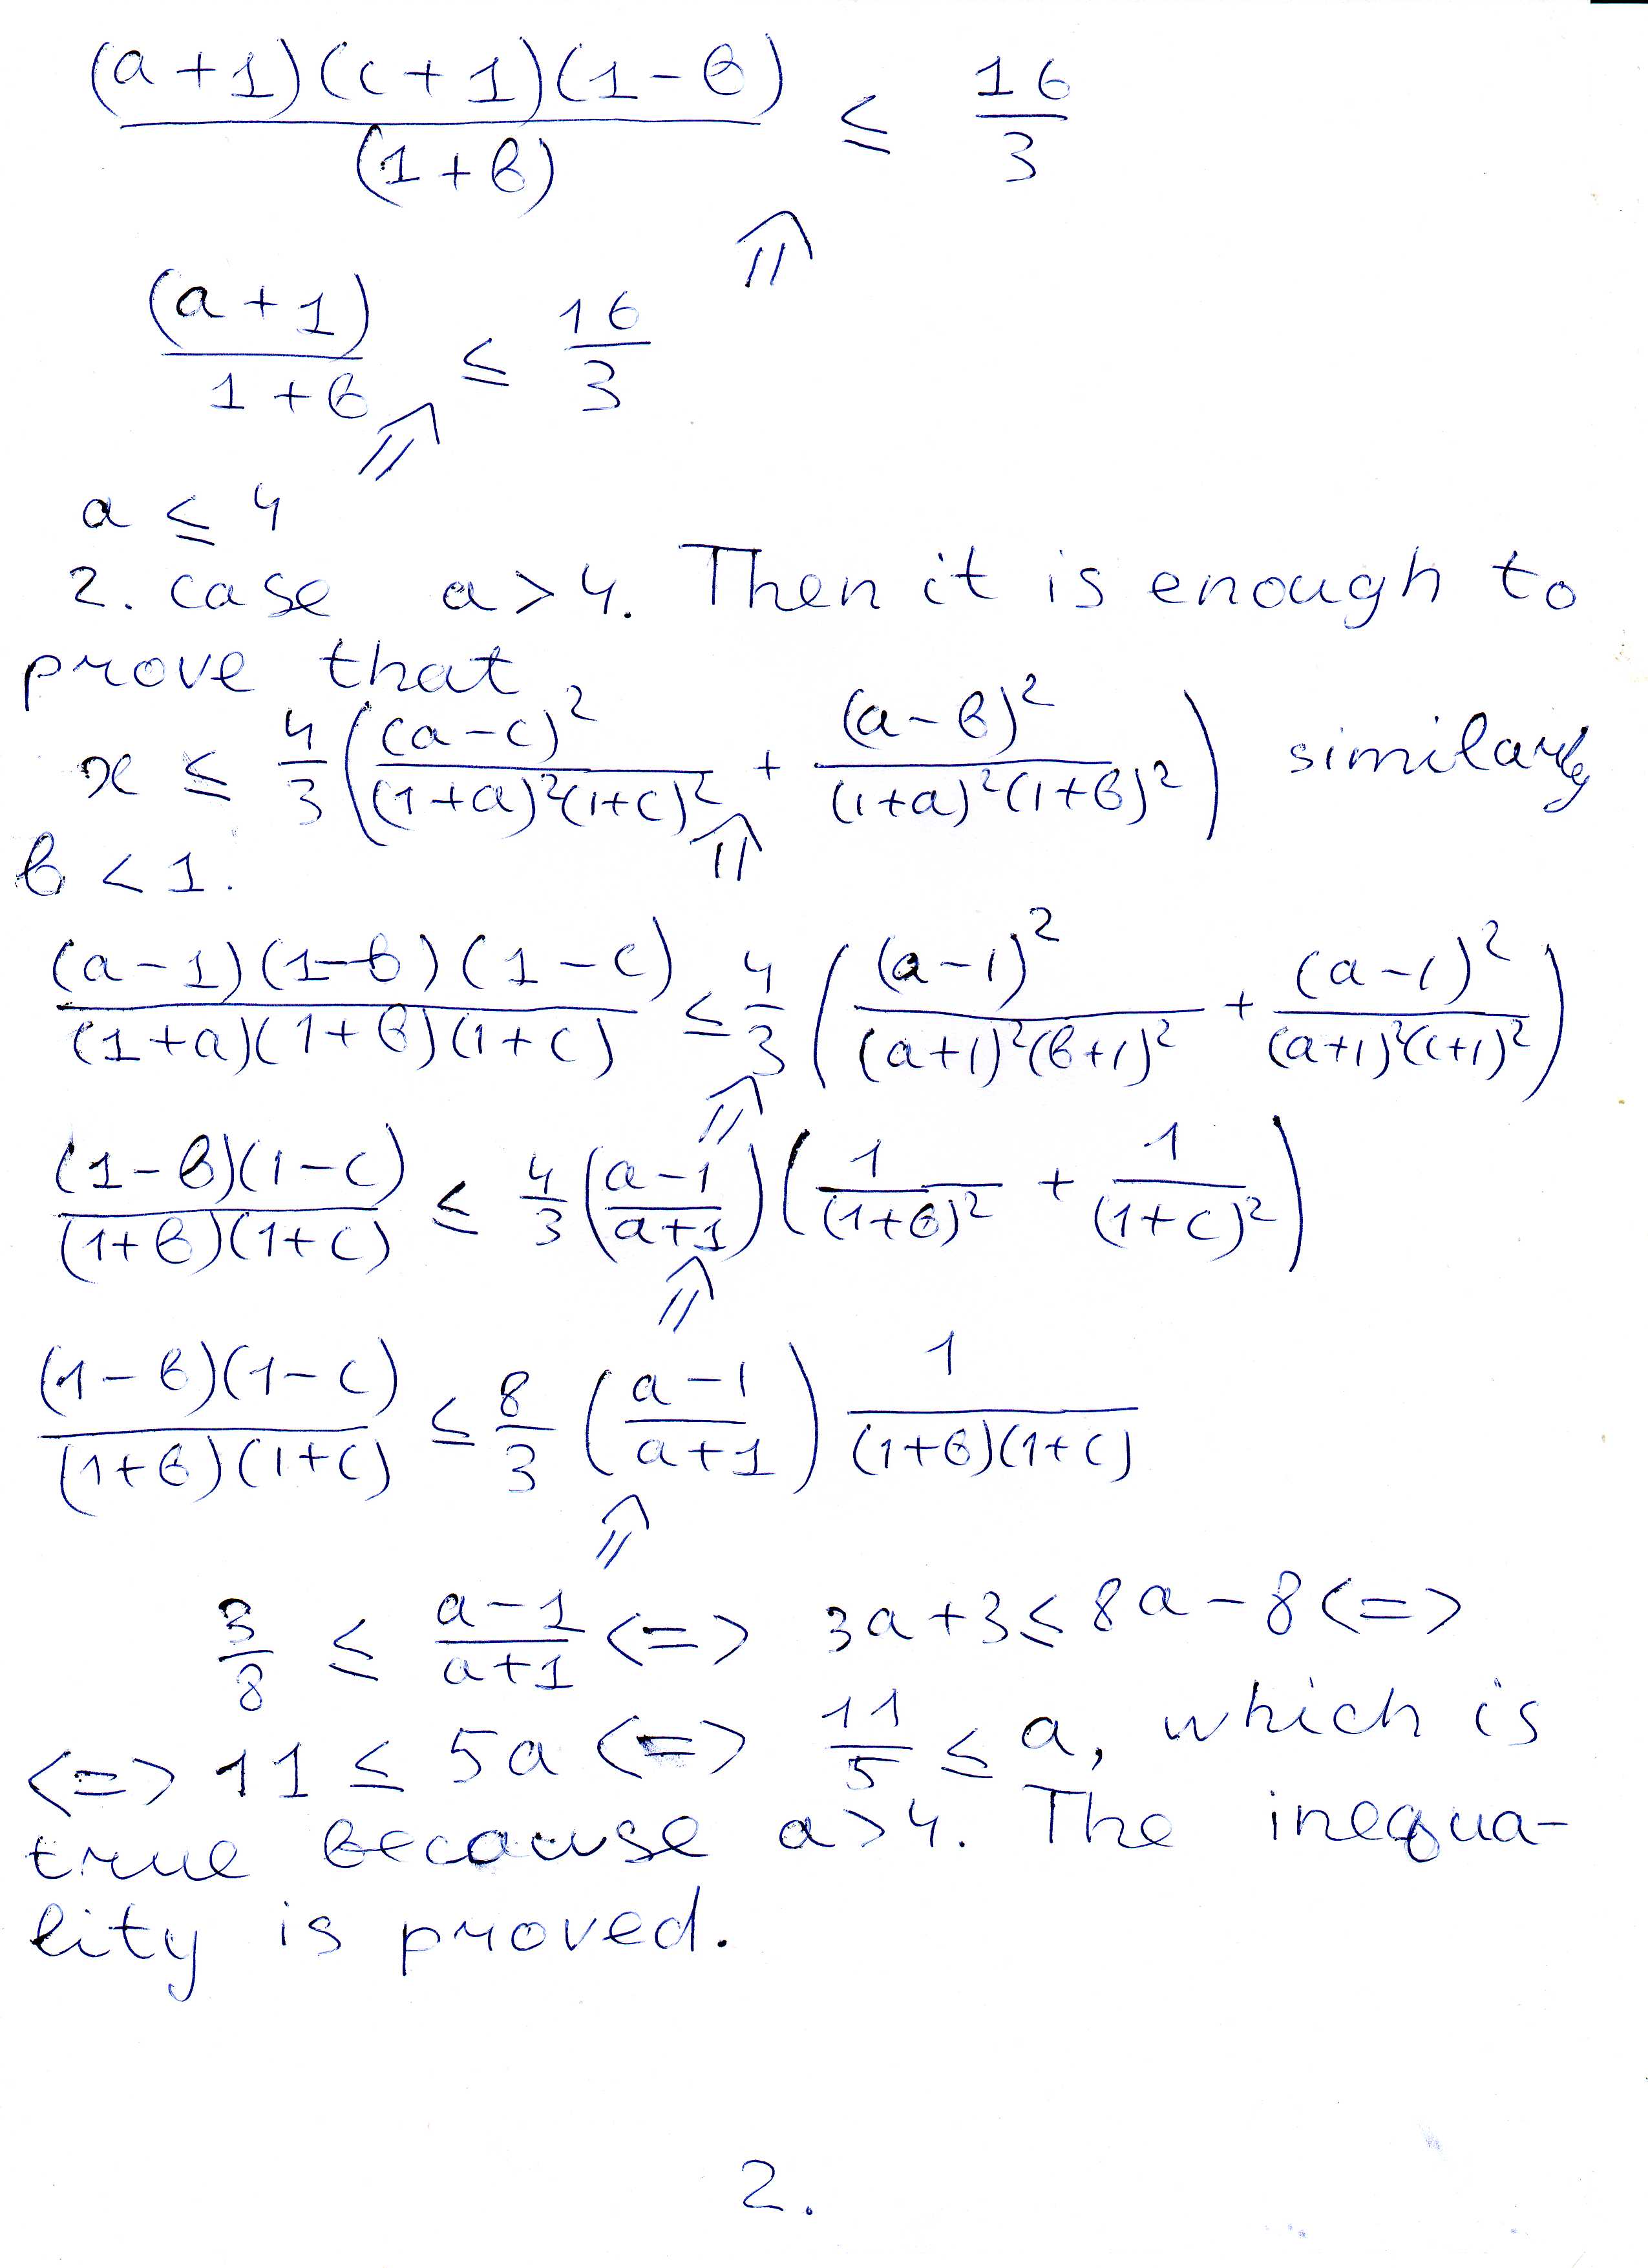 (a+1)(c+1)(1-b) / (1+b) ≤ 16/3
⇑
(a+1) / 1+b ≤ 16/3
⇑
a ≤ 4
2. case a>4. Then it is enough to
prove that
x ≤ 4/3 ( (a-c)² / (1+a)²(1+c)² + (a-b)² / (1+a)²(1+b)² ) similarly
⇑
b < 1.
(a-1)(1-b)(1-c) / (1+a)(1+b)(1+c) ≤ 4/3 ( (a-1)² / (a+1)²(b+1)² + (a-1)² / (a+1)²(c+1)² )
⇑
(1-b)(1-c) / (1+b)(1+c) ≤ 4/3 (a-1 / a+1) ( 1 / (1+b)² + 1 / (1+c)² )
⇑
(1-b)(1-c) / (1+b)(1+c) ≤ 8/3 (a-1 / a+1) 1 / (1+b)(1+c)
⇑
3/8 ≤ a-1 / a+1 <=> 3a+3 ≤ 8a-8 <=>
<=> 11 ≤ 5a <=> 11/5 ≤ a, which is
true because a>4. The inequa-
lity is proved.
2.